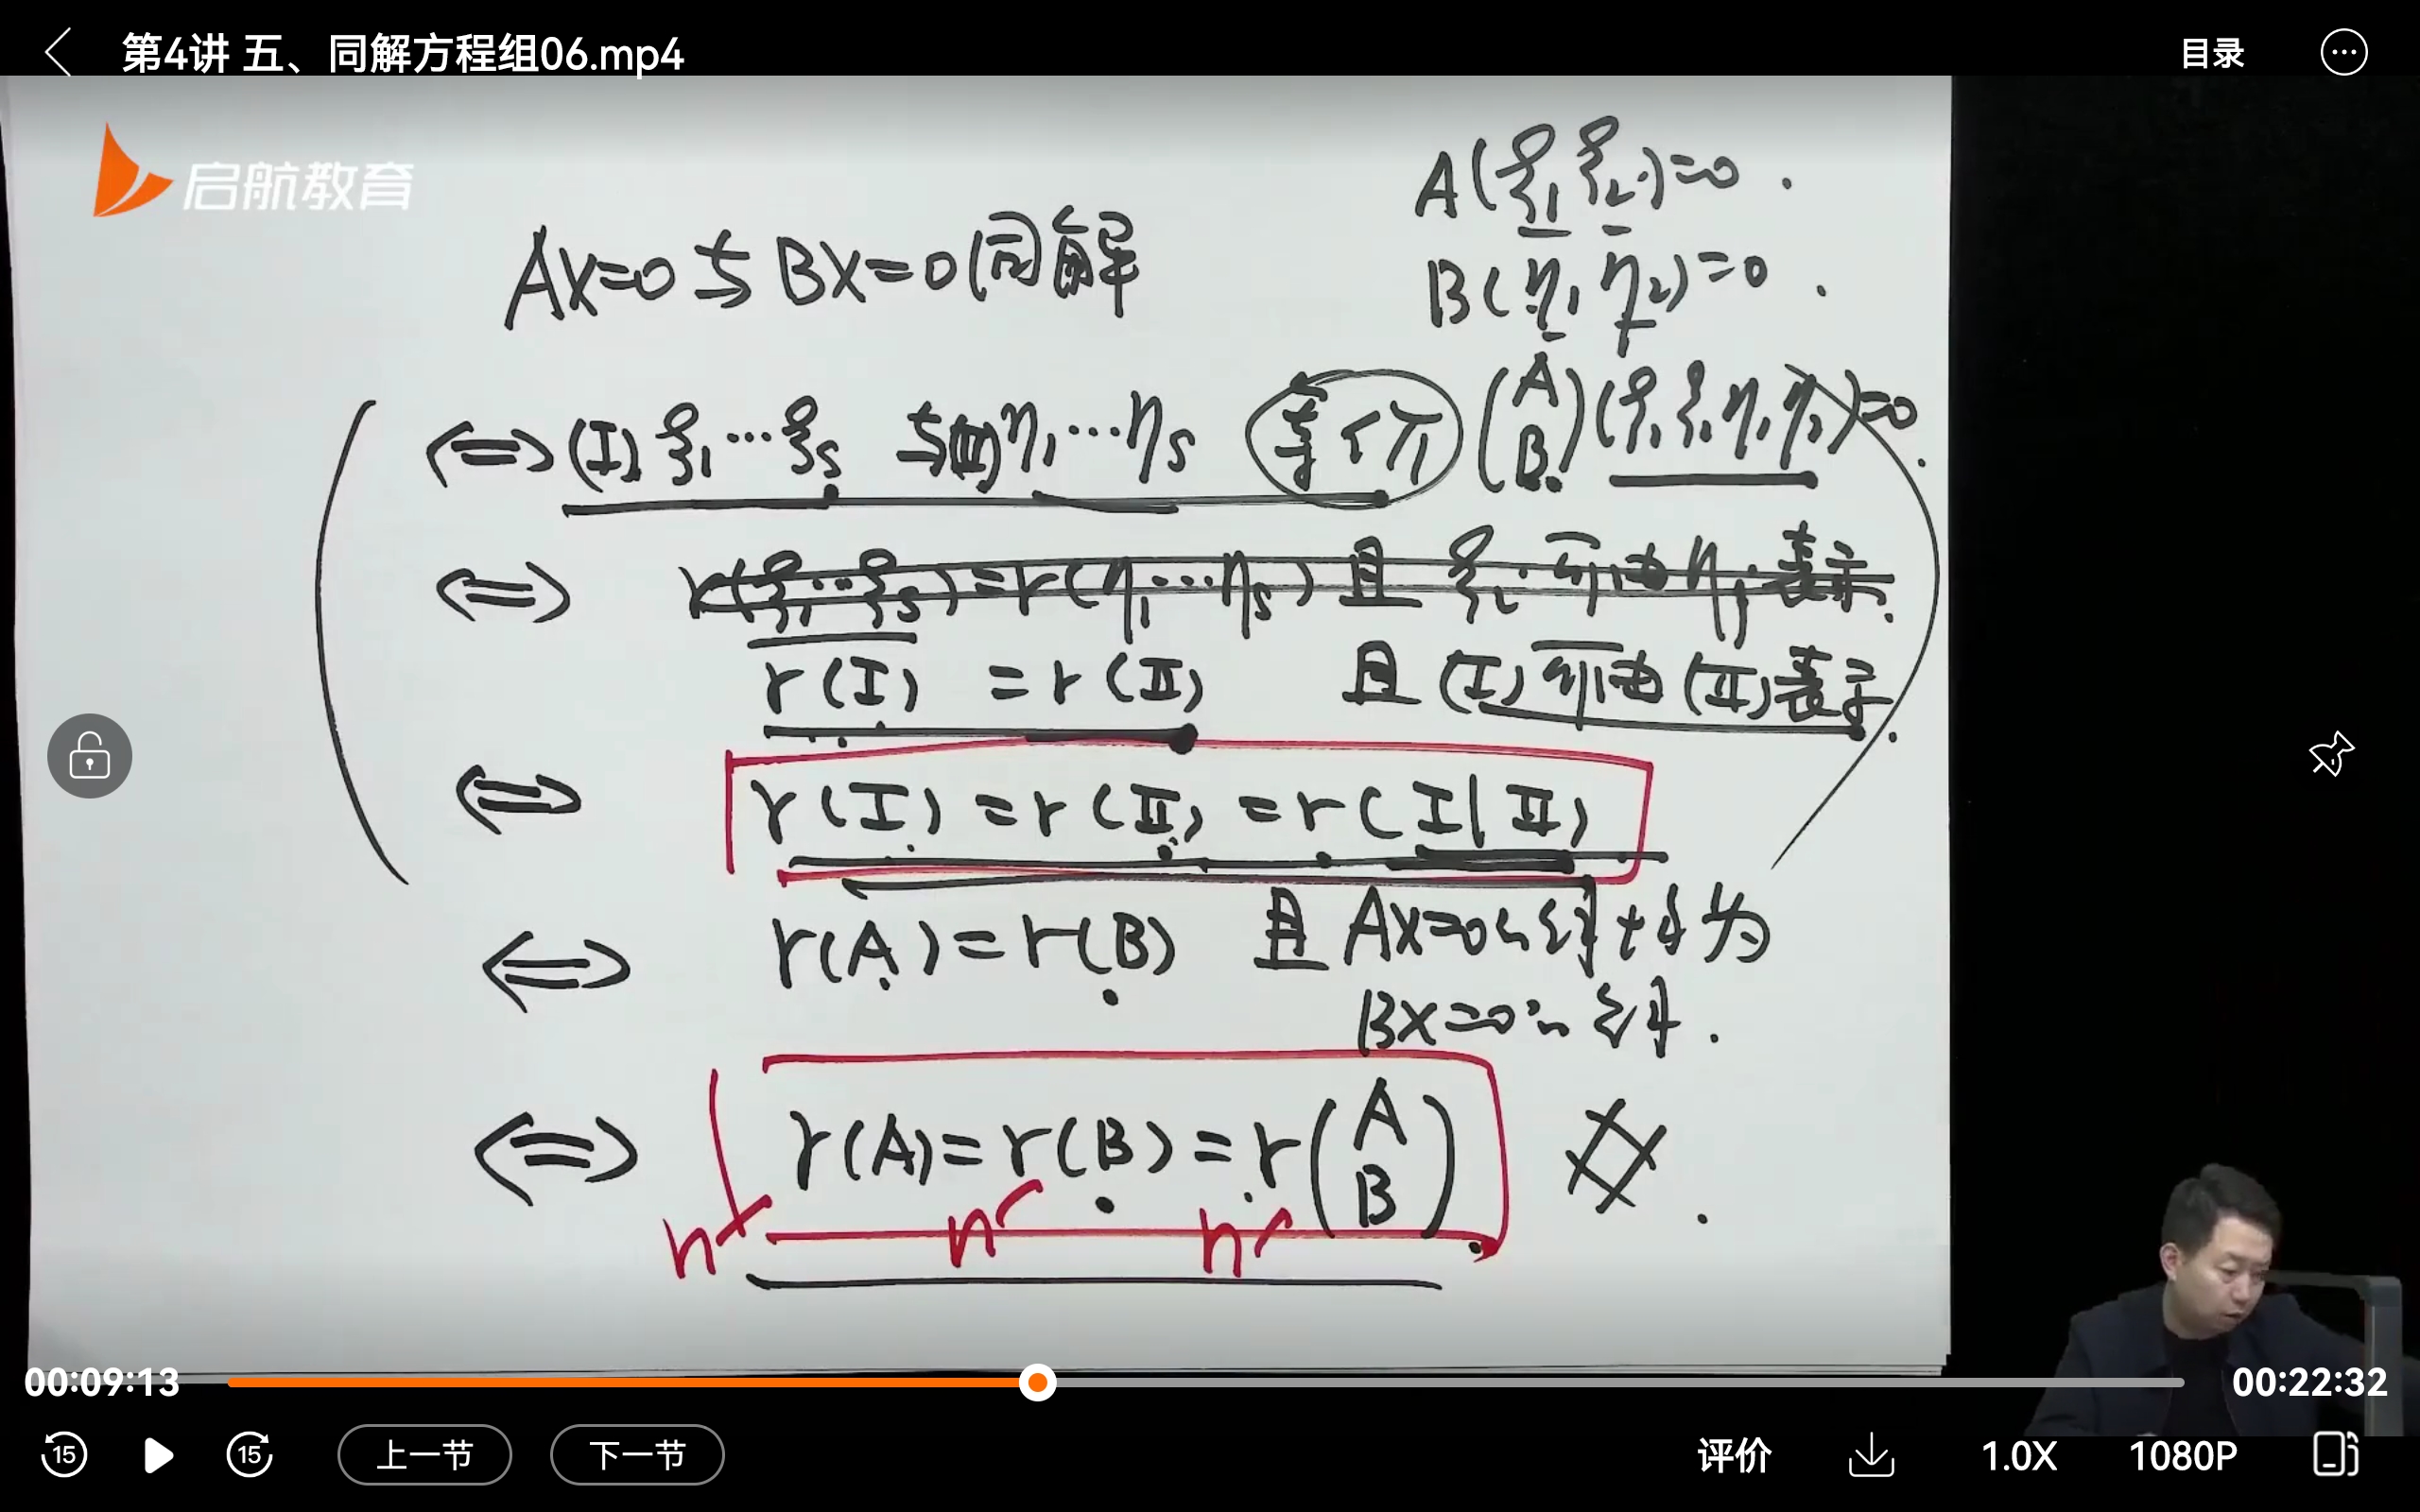 第4讲 五、同解方程组06.mp4
目录
启航教育
A(ξ₁ ξ₂)=0.
B(η₁ η₂)=0.
AX=0与BX=0同解
⇔(I) ξ₁…ξs 与(II)η₁…ηs 等价
(A B)(ξ₁ ξ₂ η₁ η₂)=0.
⇔ r(ξ₁…ξs)=r(η₁…ηs) 且 ξi 可由 ηj 表示.
r(I) = r(II) 且(I)可由(II)表示.
⇔ r(I)=r(II)=r(I|II)
⇔ r(A)=r(B) 且 AX=0 为
BX=0
⇔ r(A)=r(B)=r(A B)
n- n- n-
00:09:13
00:22:32
15
15
上一节
下一节
评价
1.0X
1080P